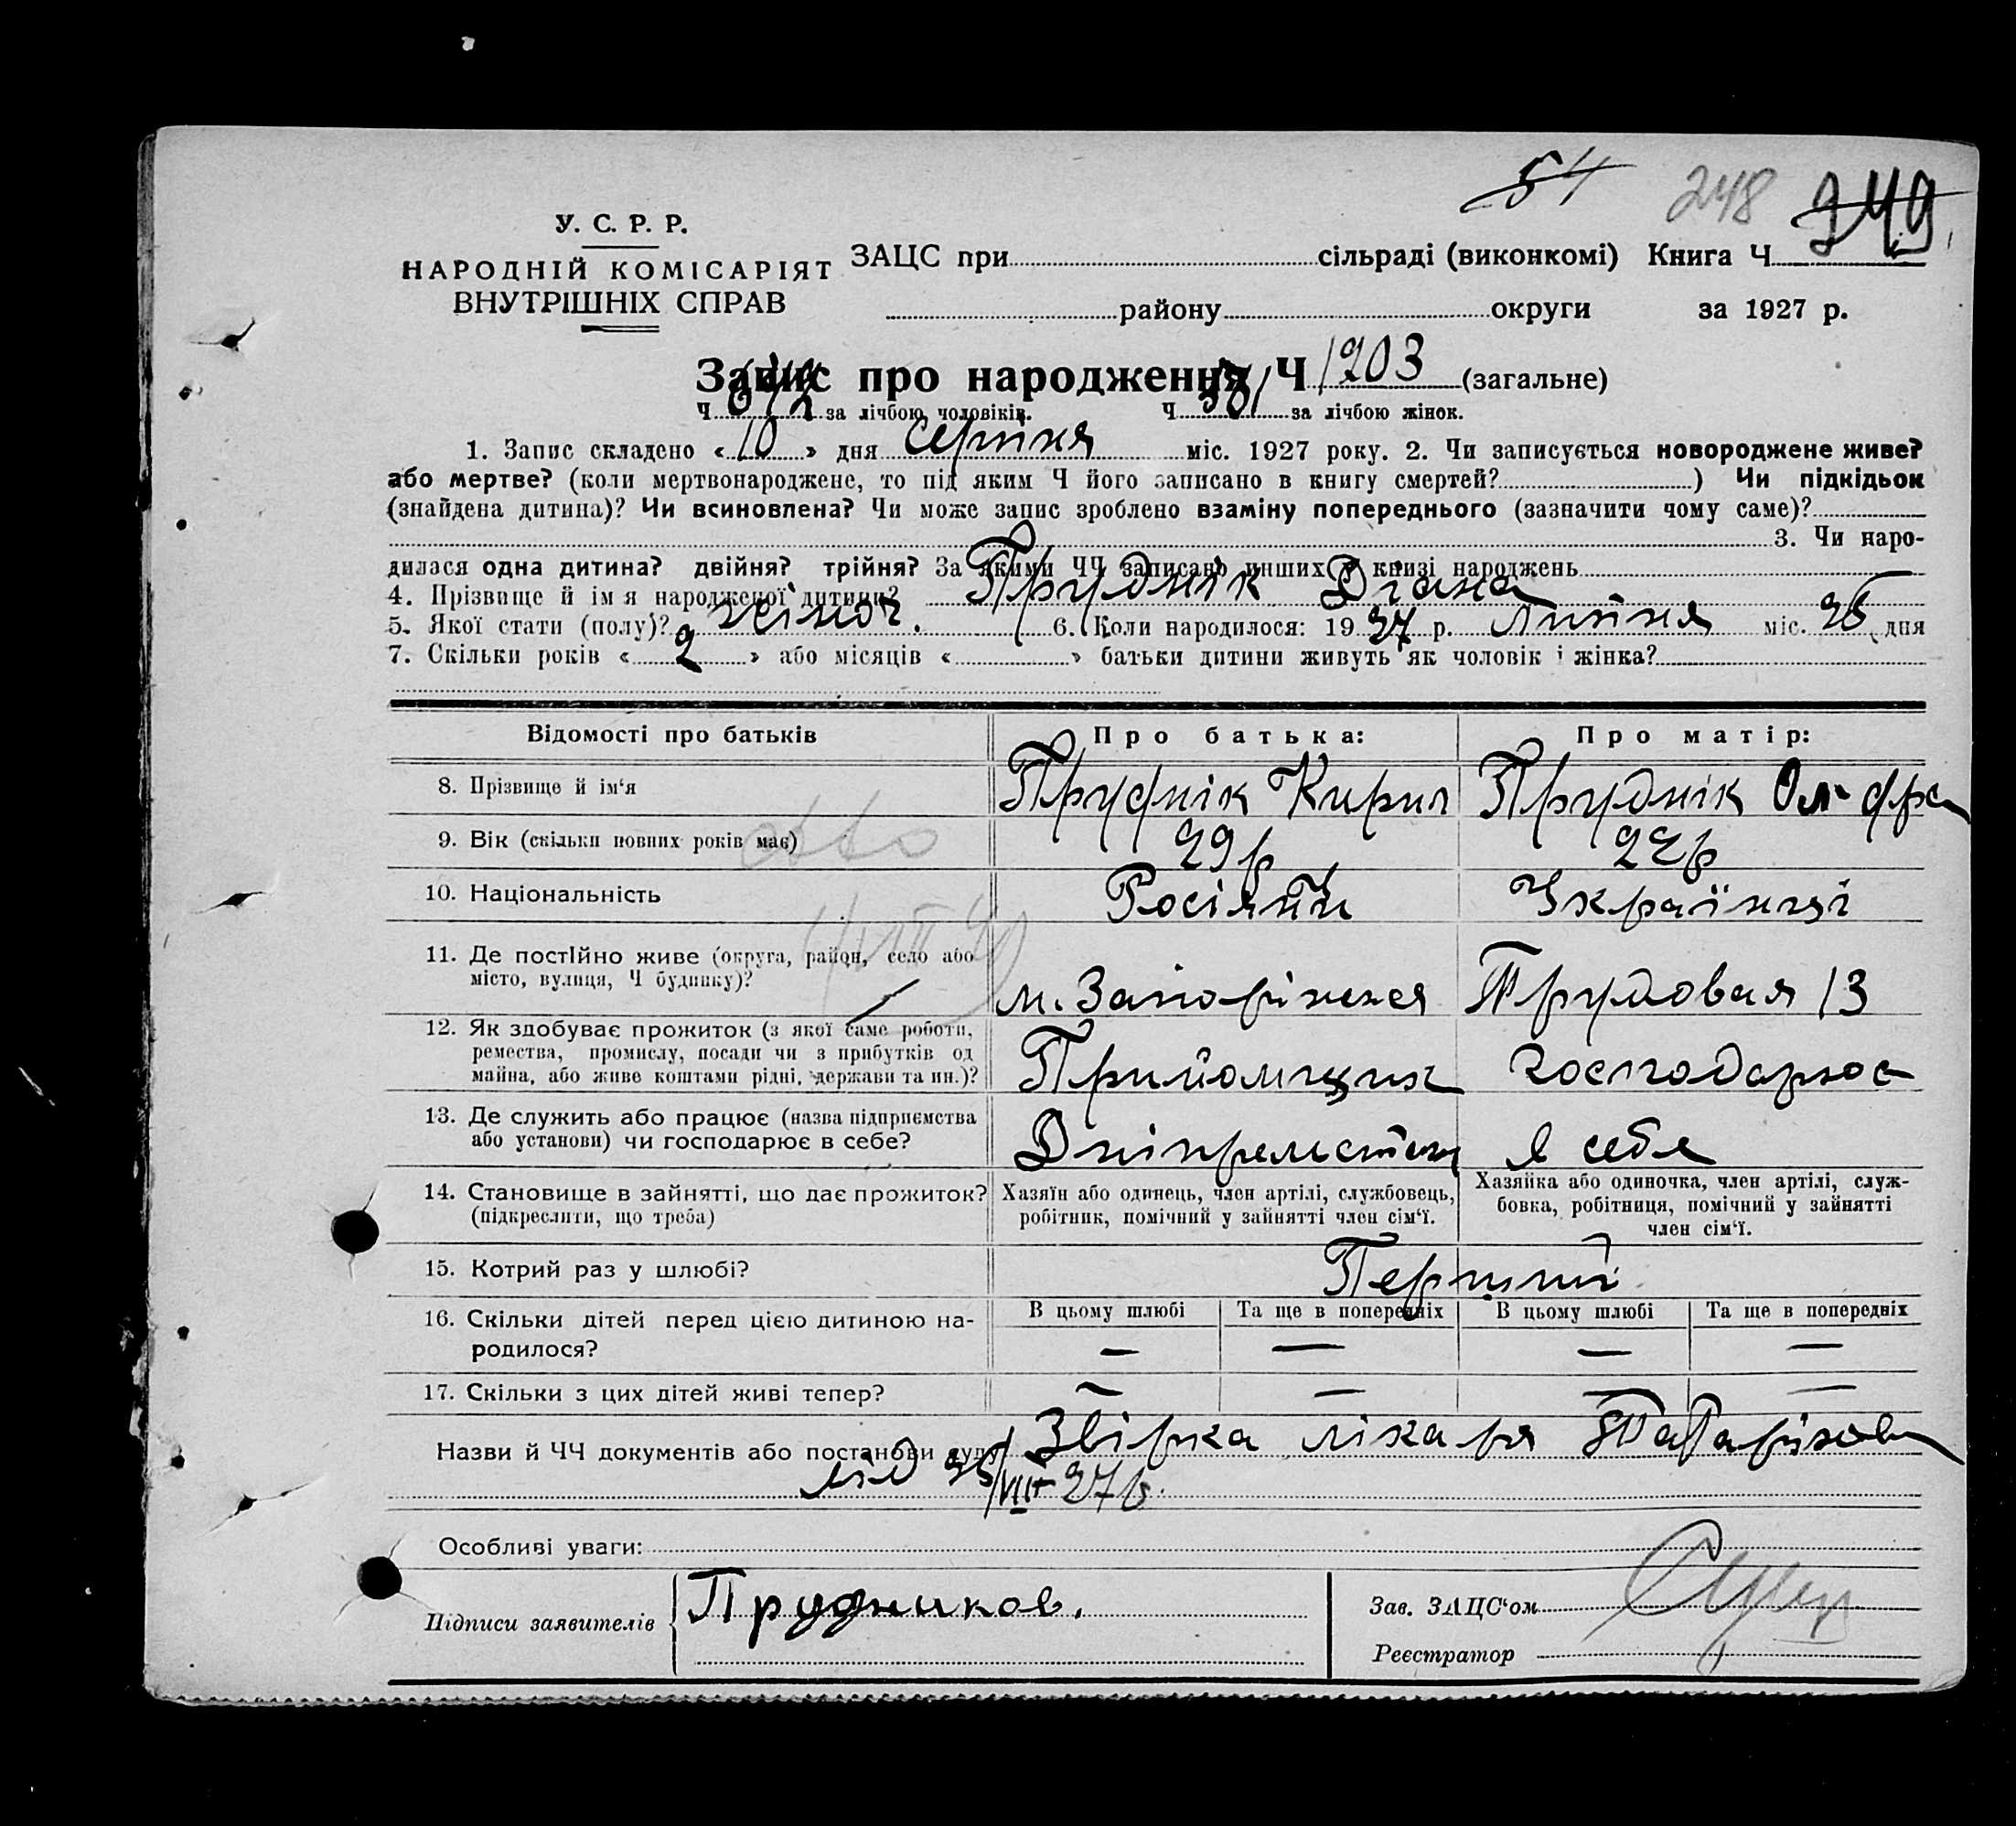 54 248 249
У. С. Р. Р.
НАРОДНІЙ КОМІСАРІЯТ
ВНУТРІШНІХ СПРАВ
ЗАЦС при сільраді (виконкомі) Книга Ч
району округи за 1927 р.
Запис про народження Ч 1203 (загальне)
Ч 642 за лічбою чоловіків. Ч 561 за лічбою жінок.
1. Запис складено « 10 » дня серпня міс. 1927 року. 2. Чи записується новороджене живе?
або мертве? (коли мертвонароджене, то під яким Ч його записано в книгу смертей? ) Чи підкідьок
(знайдена дитина)? Чи всиновлена? Чи може запис зроблено взаміну попереднього (зазначити чому саме)?
3. Чи наро-
дилася одна дитина? двійня? трійня? За якими ЧЧ записано инших у книзі народжень
4. Прізвище й ім я народженої дитини? Пруднік Діана
5. Якої стати (полу)? жіноч. 6. Коли народилося: 19 27 р. липня міс. 26 дня
7. Скільки років « 2 » або місяців « » батьки дитини живуть як чоловік і жінка?
Відомості про батьків Про батька: Про матір:
8. Прізвище й ім‘я Пруднік Кирил Пруднік
9. Вік (скільки повних років має) 29 р 22 р
10. Національність Росіянин
11. Де постІйно живе (округа, район, село або
місто, вулиця, Ч будинку)? м. Запоріжжя Трудовая 13
12. Як здобуває прожиток (з якої саме роботи,
ремества, промислу, посади чи з прибутків од
майна, або живе коштами рідні, держави та ин.)? Прийомщик господарює
13. Де служить або працює (назва підприємства
або установи) чи господарює в себе? себе
14. Становище в зайнятті, що дає прожиток?
(підкреслити, що треба)
Хазяїн або одинець, член артілі, службовець,
робітник, помічний у зайнятті член сім‘ї.
Хазяйка або одиночка, член артілі, служ-
бовка, робітниця, помічний у зайнятті
член сім‘ї.
15. Котрий раз у шлюбі? Перший
В цьому шлюбі Та ще в попередніх В цьому шлюбі Та ще в попередніх
16. Скільки дітей перед цією дитиною на-
родилося? — — — —
17. Скільки з цих дітей живі тепер? — — — —
Назви й ЧЧ документів або постанови суду Звірка лікаря
від 27 р.
Особливі уваги:
Підписи заявителів Прудников.
Зав. ЗАЦС‘ом
Реєстратор